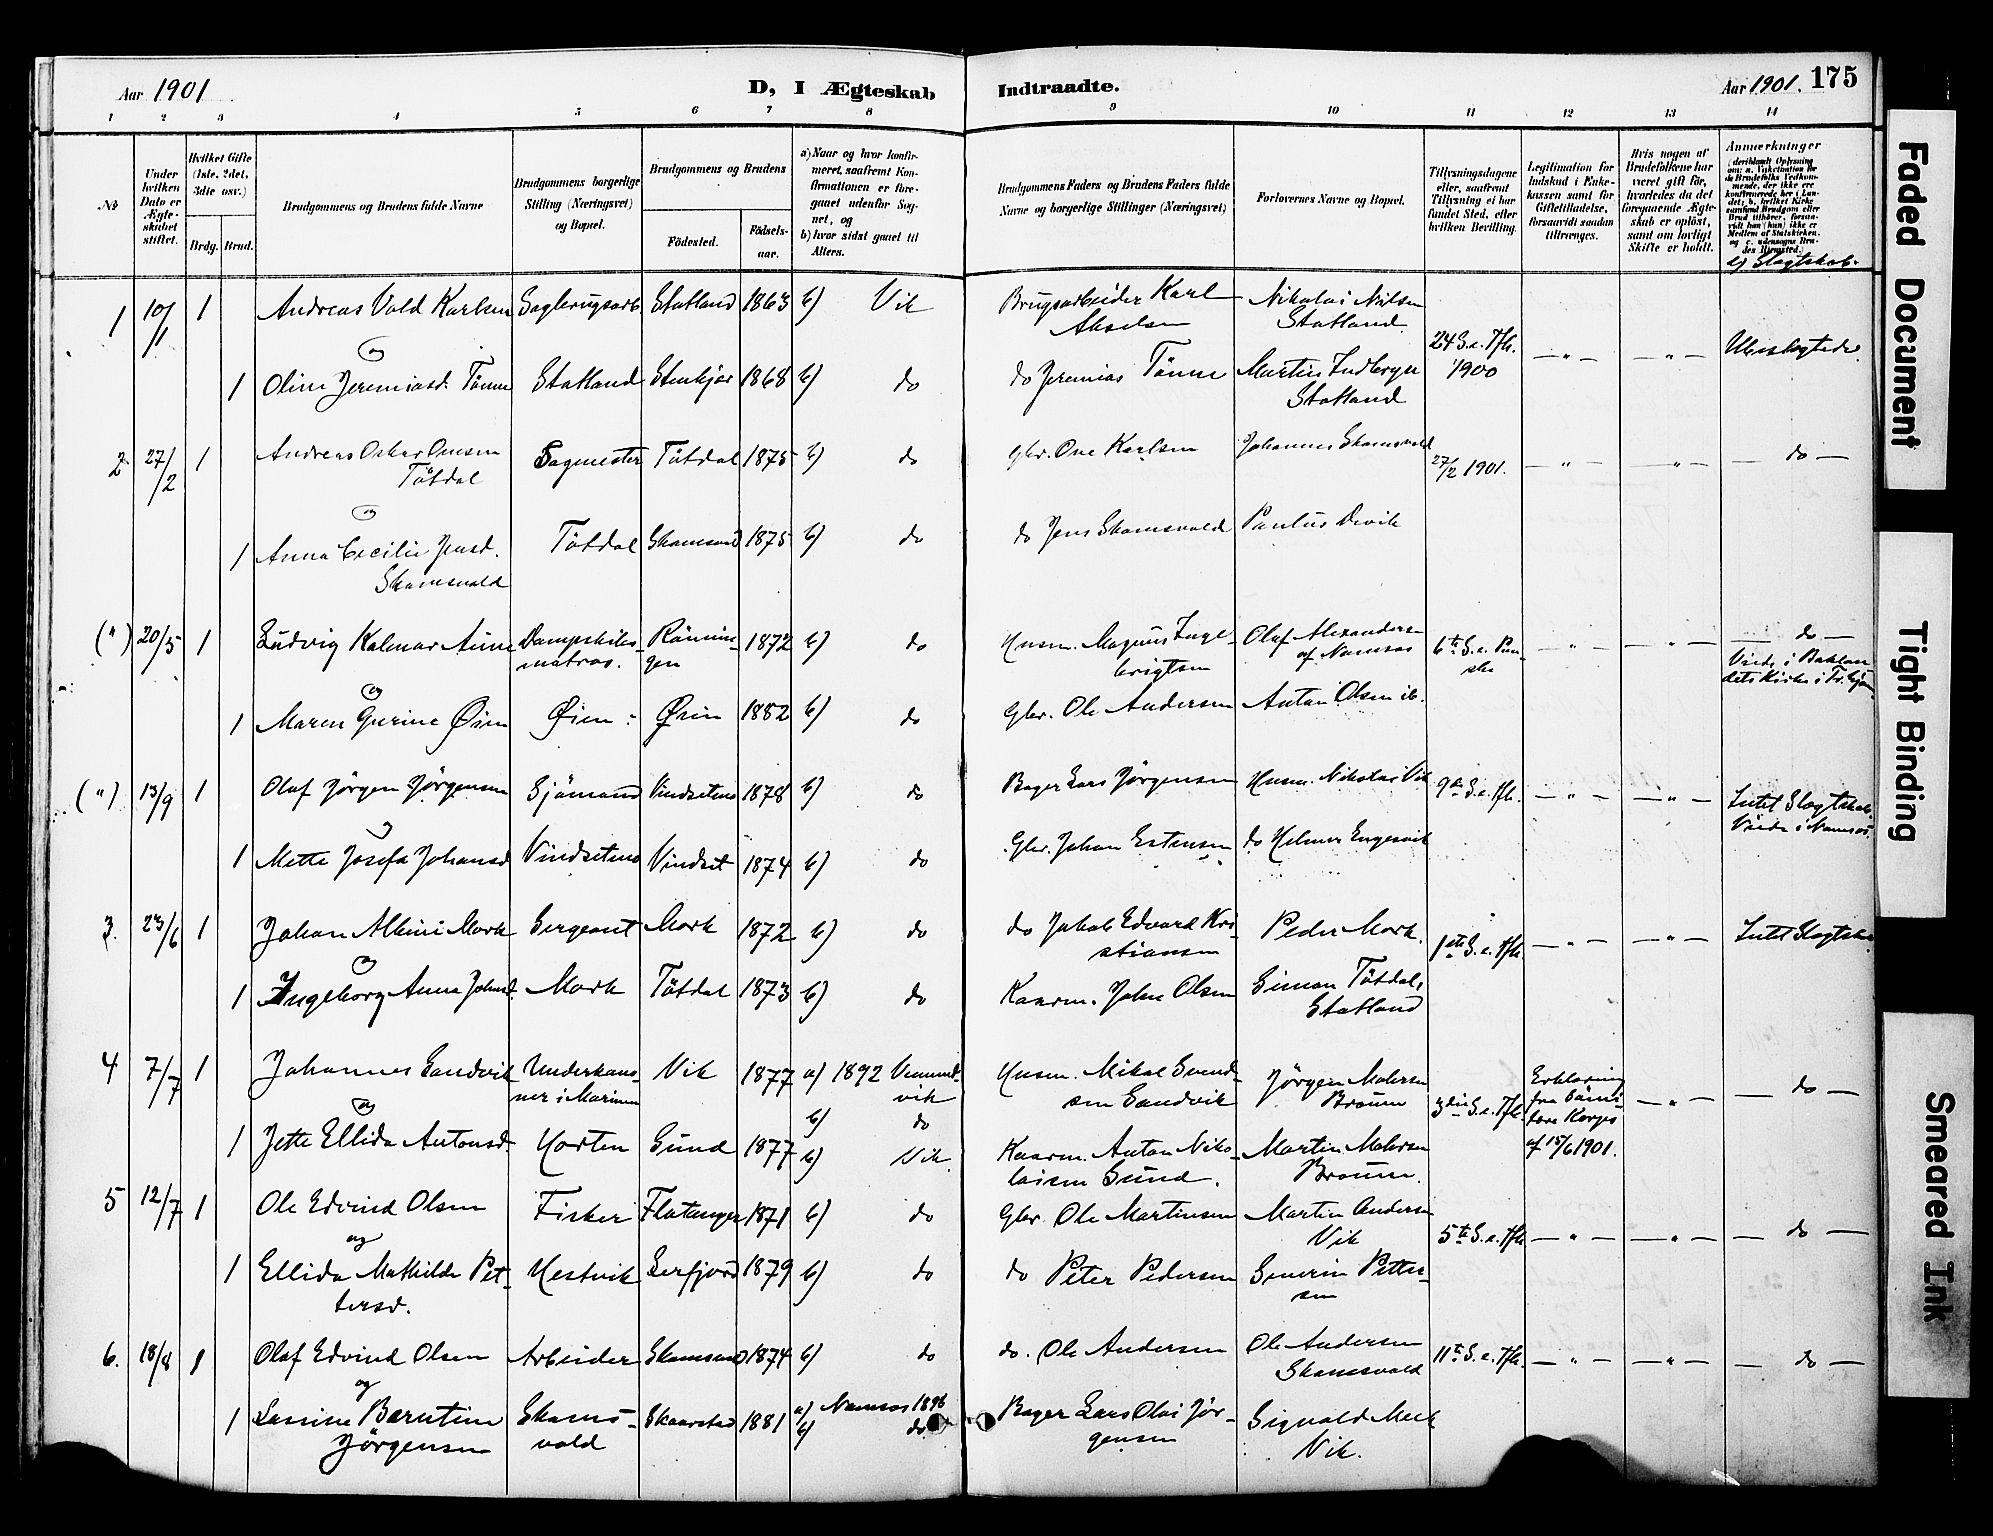 Aar 1901
D, I Ægteskab
Indtraadte.
Aar 1901. 175
1 2 3 4 5 6 7 8 9 10 11 12 13 14
№
Under hvilken Dato er Ægteskabet stiftet.
Hvilket Gifte (1ste, 2det, 3die osv.)
Brdg. Brud.
Brudgommens og Brudens fulde Navne
Brudgommens borgerlige Stilling (Næringsvei) og Bopæl.
Brudgommens og Brudens
Fødested.
Fødselsaar.
a) Naar og hvor konfirmeret, saafremt Konfirmationen er foregaaet udenfor Sognet, og
b) hvor sidst gaaet til Alters.
Brudgommens Faders og Brudens Faders fulde Navne og borgerlige Stillinger (Næringsvei)
Forlovernes Navne og Bopæl.
Tillysningsdagene eller, saafremt Tillysning ei har fundet Sted, efter hvilken Bevilling.
Legitimation for Indskud i Enkekassen samt for Giftetilladelse, forsaavidt saadan tiltrænges.
Hvis nogen af Brudefolkene har været gift før, hvorledes da det foregaaende Ægteskab er opløst, samt om lovligt Skifte er holdt.
Anmærkninger
c) Slægtskab.
1 10/1 1 Andreas Vold Karlsen Sagbrugsarb. Statland 1863 b) Vik Brugsarbeider Karl Akselsen Nikolai Nilsen Statland 24 S. e. Tfh. 1900 — " — — " — Ubeslægtede
og
1 Oline Jeremiasd. Tønne Statland Stenkjær 1868 b) do do Jeremias Tønne Martin Indberger Statland
2 27/2 1 Andreas Oskar Ovesen Tøtdal Sagmester Tøtdal 1875 b) do Gbr. Ove Karlsen Johannes Skamsvold 27/2 1901. — " — — " — — do —
og
1 Anna Cecilie Jensd. Skamsvold Tøtdal Skamsund 1875 b) do do Jens Skamsvold Paulus Devik
(") 20/5 1 Ludvig Kalmar Aune Dampskibsmatros. Rønningen 1872 b) do Husm. Magnus Ingebrigtsen Olaf Alexandersen af Namsos 6te S. e. Paaske — " — — " — — do — Viede i Baklandets Kirke i Tr.hjem
og
1 Maren Gurine Øien Øien Øien 1882 b) do Gbr. Ole Andersen Anton Olsen ib.
(") 13/9 1 Olaf Jørgen Jørgensen Sjømand Vindsetmo 1878 b) do Bager Lars Jørgensen Husm. Nikolai Vik 9de S. e. Tfh. — " — — " — Intet Slægtskab. Viede i Namsos.
og
1 Mette Josefa Johansd. Vindsetmo Vindset 1874 b) do Gbr. Johan Estensen do Helmer Engesvik
3. 23/6 1 Johan Albini Mork Sergeant Mork 1872 b) do do Jakob Edvard Kristiansen Peder Mork. 1ste S. e. Tfh. — " — — " — Intet Slægtska
og
1 Ingeborg Anna Johnsd. Mork Tøtdal 1873 b) do Kaarm. John Olsen Simon Tøtdal, Statland
4 7/7 1 Johannes Sandvik Underkanoner i Marinen Vik 1877 a) 1892 Vemundvik b) do Husm. Mikal Svendsen Sandvik Jørgen Malersen Braaen 3die S. e. Tfh. Erklæring fra Sømilitære Korps af 15/6 1901. — " — — do —
og
1 Jette Ellida Antonsd. Horten Sund 1877 b) Vik Kaarm. Anton Nikolaisen Sund. Martin Malersen Braaen.
5 12/7 1 Ole Edvind Olsen Fisker Flatanger 1871 b) do Gbr. Ole Martinsen Martin Andersen Vik 5te S. e. Tfh. — " — — " — — do —
og
1 Ellida Mathilde Pettersd. Hestvik Lerfjord 1879 b) do do Peter Pedersen Severin Pettersen
6. 18/8 1 Olaf Edvind Olsen Arbeider Skamsund 1874 b) do do. Ole Andersen Ole Andersen Skamsvold 11te S. e. Tfh. — " — — " — — do —
og
1 Lassine Berntine Jørgensen Skamsvold Skaarstad 1881 a) Namsos 1896 b) do Bager Lars Olai Jørgensen Sigvald Meek Vik.
Faded Document
Tight Binding
Smeared Ink